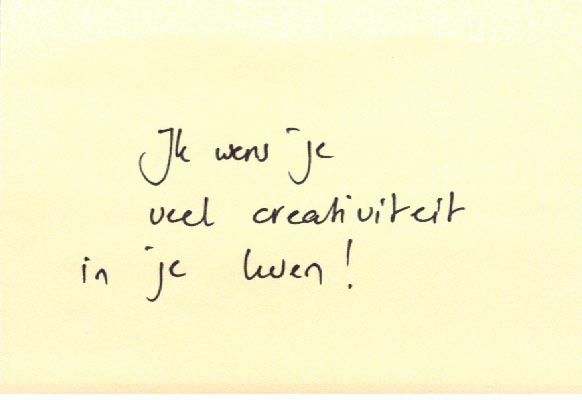 Ik wens je
veel creativiteit
in je leven!